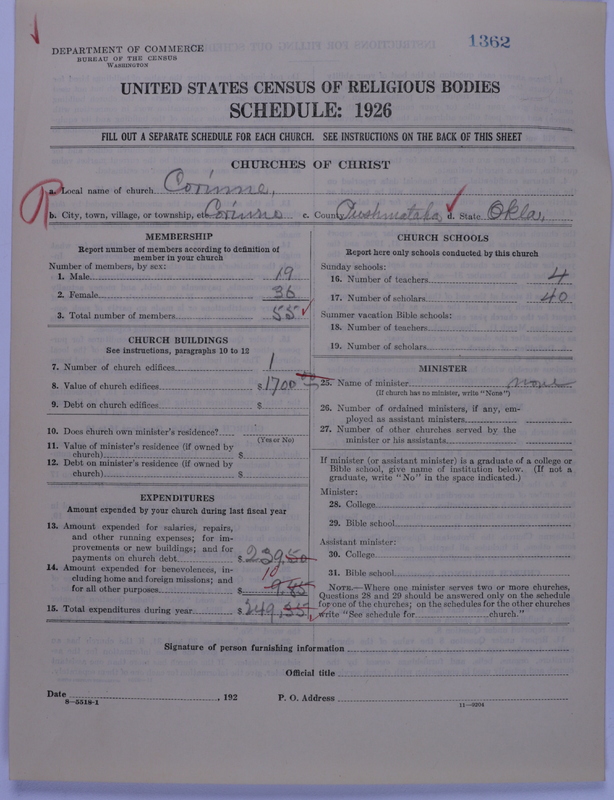 1362
DEPARTMENT OF COMMERCE
BUREAU OF THE CENSUS
WASHINGTON
UNITED STATES CENSUS OF RELIGIOUS BODIES
SCHEDULE: 1926
FILL OUT A SEPARATE SCHEDULE FOR EACH CHURCH. SEE INSTRUCTIONS ON THE BACK OF THIS SHEET
CHURCHES OF CHRIST
a. Local name of church Corinne,
b. City, town, village, or township, etc Corinne c. County Pushmataha d. State Okla,
MEMBERSHIP
Report number of members according to definition of
member in your church
Number of members, by sex:
1. Male 19
2. Female 36
3. Total number of members 55
CHURCH BUILDINGS
See instructions, paragraphs 10 to 12
7. Number of church edifices 1
8. Value of church edifices $1700 00
9. Debt on church edifices $
10. Does church own minister's residence?
(Yes or No)
11. Value of minister's residence (if owned by
church) $
12. Debt on minister's residence (if owned by
church) $
EXPENDITURES
Amount expended by your church during last fiscal year
13. Amount expended for salaries, repairs,
and other running expenses; for im-
provements or new buildings; and for
payments on church debt $239.50
14. Amount expended for benevolences, in-
cluding home and foreign missions; and
for all other purposes $ 10 9.85
15. Total expenditures during year $249.35
CHURCH SCHOOLS
Report here only schools conducted by this church
Sunday schools:
16. Number of teachers 4
17. Number of scholars 40
Summer vacation Bible schools:
18. Number of teachers
19. Number of scholars
MINISTER
25. Name of minister none
(If church has no minister, write "None")
26. Number of ordained ministers, if any, em-
ployed as assistant ministers
27. Number of other churches served by the
minister or his assistants
If minister (or assistant minister) is a graduate of a college or
Bible school, give name of institution below. (If not a
graduate, write "No" in the space indicated.)
Minister:
28. College
29. Bible school
Assistant minister:
30. College
31. Bible school
NOTE.—Where one minister serves two or more churches,
Questions 28 and 29 should be answered only on the schedule
for one of the churches; on the schedules for the other churches
write "See schedule for church."
Signature of person furnishing information
Official title
Date , 192 P. O. Address
8—5518-1 11—9204